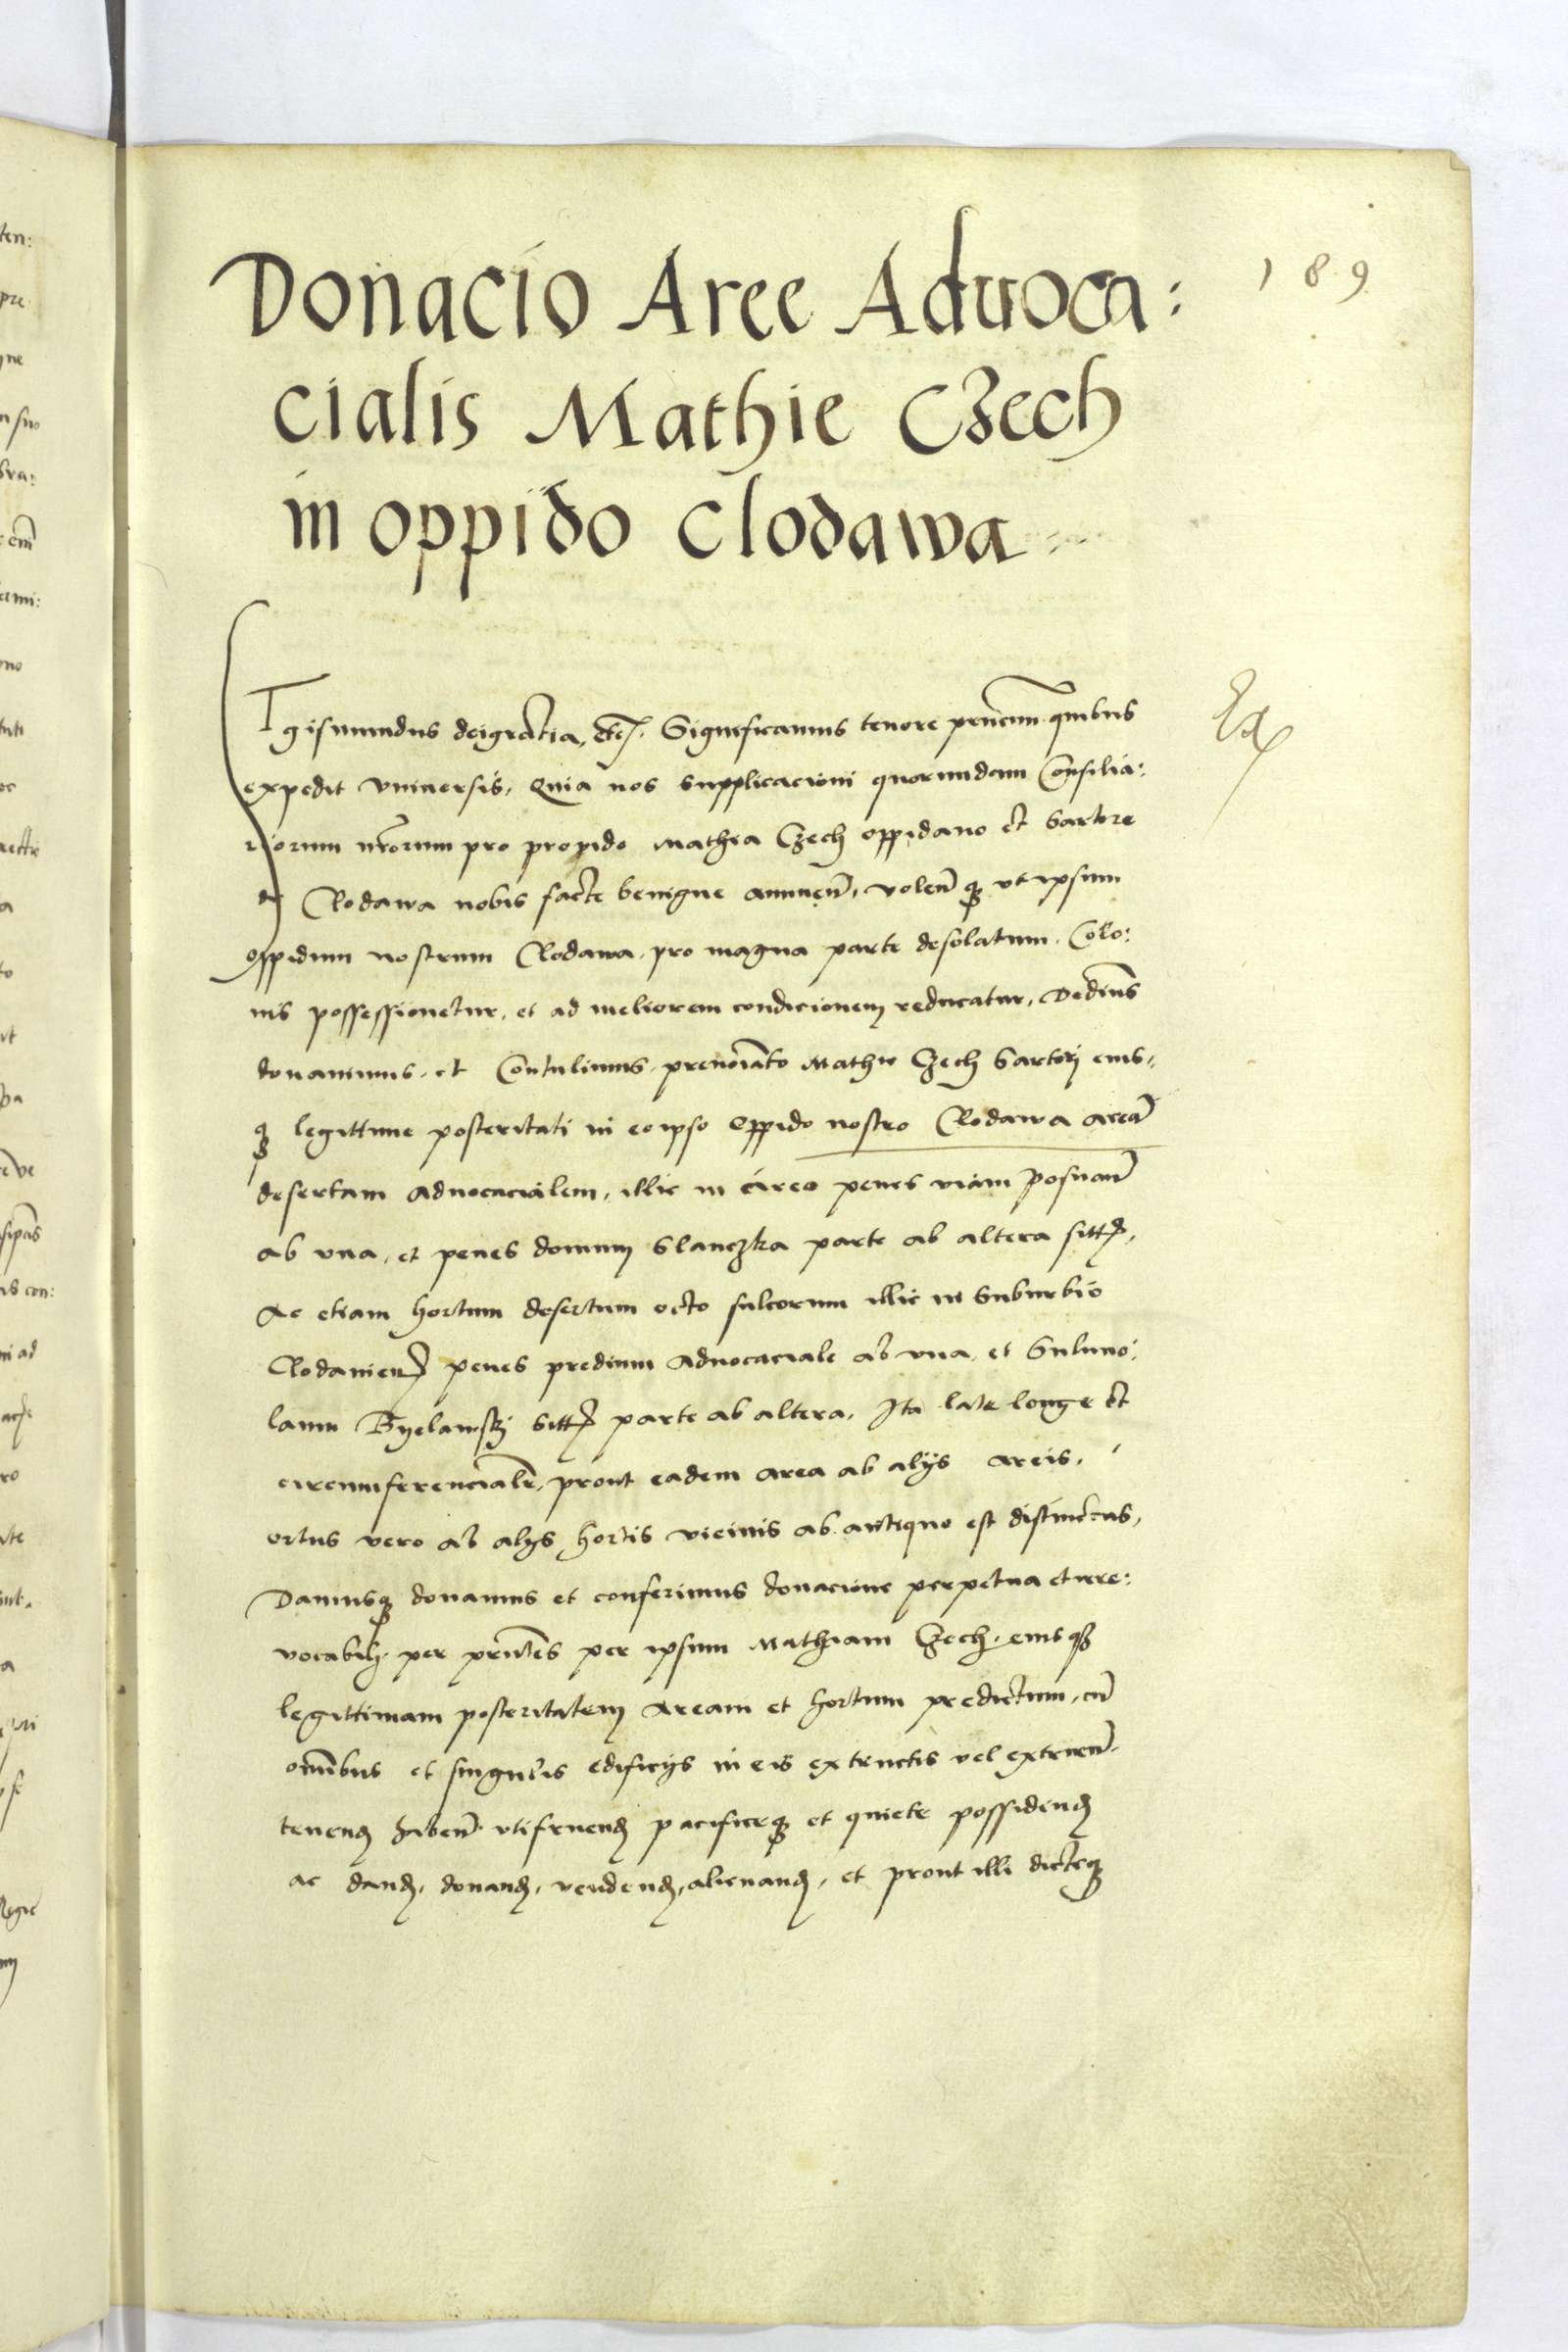 189
Donacio Aree Aduoca:
cialis Mathie Czech
in oppido Clodawa
Igismundus deigratia, etc. Significamus tenore prnciun quibus
expedit vniuersis, Quia nos supplicacioni quorundam Consilia:
riorum nrorum pro propido Mathia Czech oppidano et Sartore
de Clodawa nobis facte benigne annuen̄, volen̄ qꝫ vt ipsum
oppidum nostrum Clodawa, pro magna parte desolatum, Colo:
nis possessionetur, et ad meliorem condicionem reducatur, Dedimus
donauimus, et Contulimus, prenoiato Mathie Czech Sartori eius,
qꝫ legittime posteritati in eo ipso oppido nostro Clodawa areā
desertam aduocacialem, illic in circo penes viam Posnanien̄
ab vna, et penes domum Slanczka parte ab altera sitt,
Ac etiam hortum desertum octo sulcorum illic in Suburbio
Clodauien penes predium aduocaciale ab vna, et
Byelawski sitt parte ab altera, Ita late longe et
circumferencialr̄, prout eadem area ab alijs areis,
ortus vero ab alijs hortis vicinis ab antiquo est distinctus,
Damusqꝫ donamus et conferimus donacione perpetua et irre:
vocabili, per prntēs per ipsum Mathiam Czech, eius qꝫ
legittimam posteritatem Aream et hortum predictum, cū
omībus et singulis edificijs in eis extructis vel extruen̄
tenend̄ haben̄ vtifruend̄ pacificeqꝫ et quiete possidend̄
ac dand̄, donand̄, vendend̄, alienand̄, et prout illi dicteqꝫ